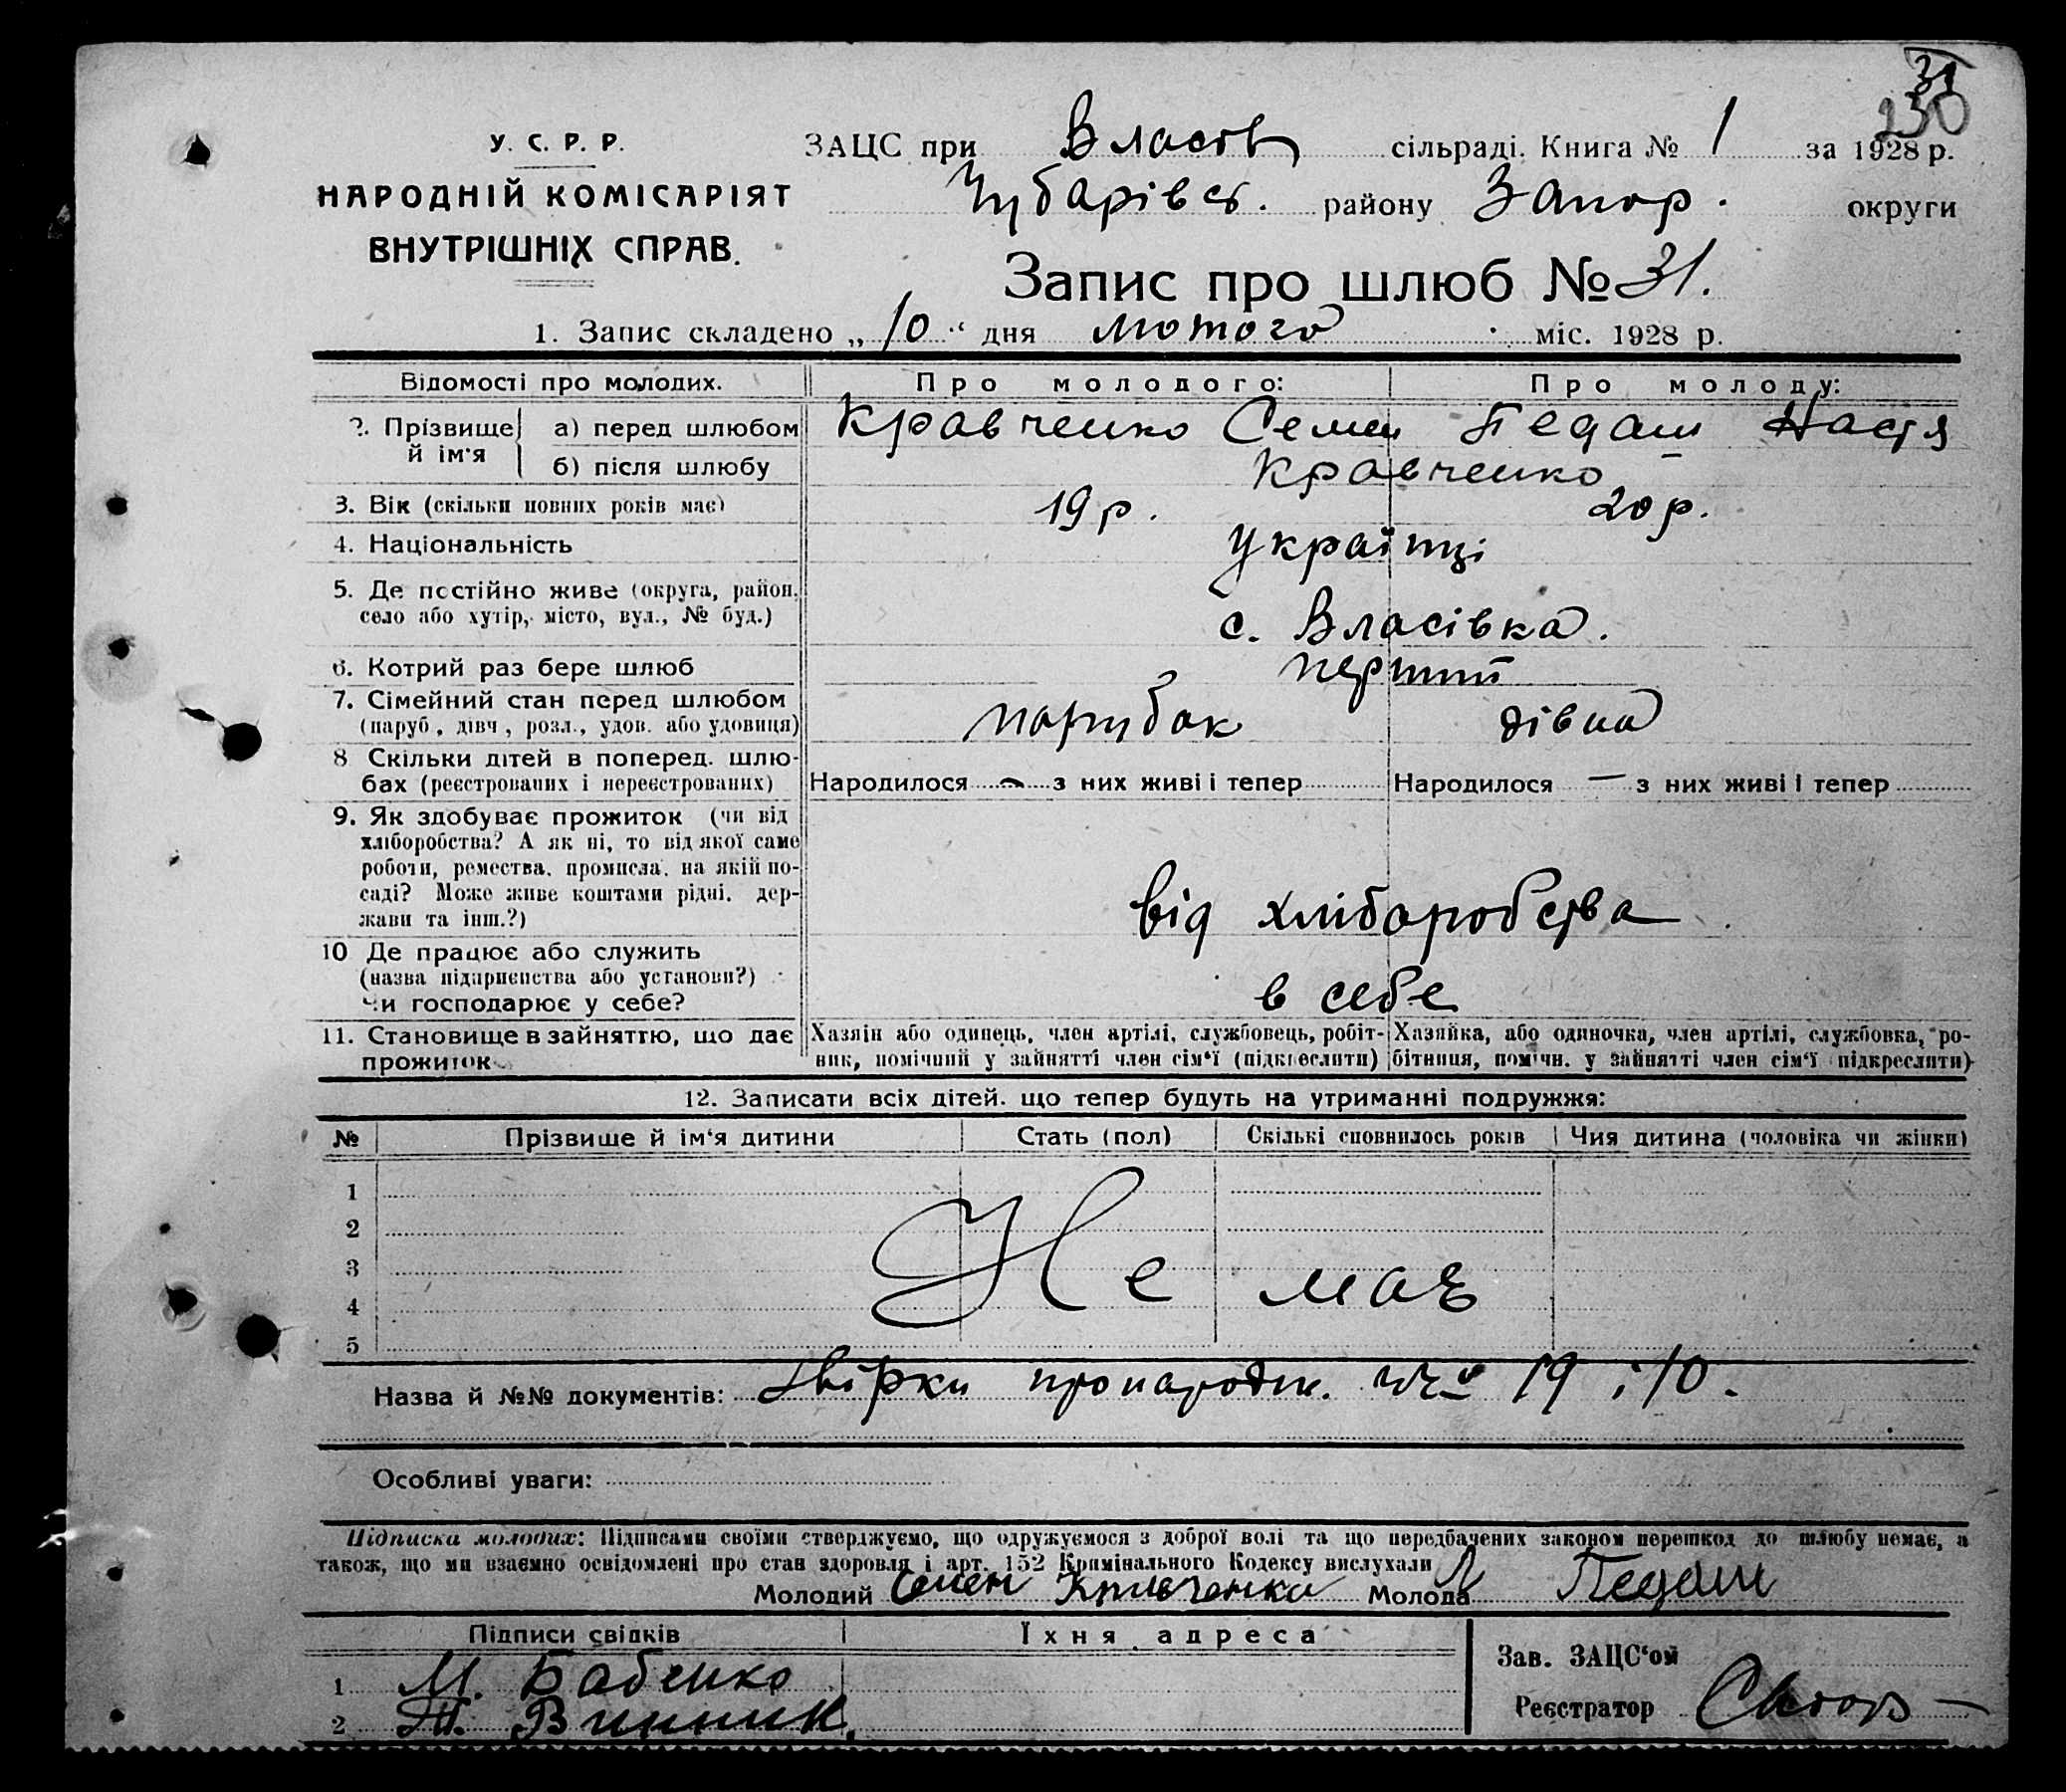 31
230
У. С. Р. Р.
НАРОДНІЙ КОМІСАРІЯТ
ВНУТРІШНІХ СПРАВ.
ЗАЦС при Власів сільраді. Книга № 1 за 1928 р.
Чубарівс. району Запор. округи
Запис про шлюб № 31.
1. Запис складено „10“ дня лютого міс. 1928 р.
Відомості про молодих. Про молодого: Про молоду:
2. Прізвище й ім'я а) перед шлюбом Кравченко Семен Педаш Настя
б) після шлюбу Кравченко
3. Вік (скільки повних років має) 19 р. 20 р.
4. Національність українці
5. Де постійно живе (округа, район,
село або хутір, місто, вул., № буд.) с. Власівка.
6. Котрий раз бере шлюб перший
7. Сімейний стан перед шлюбом
(паруб., дівч., розл., удов. або удовиця) парубок дівка
8 Скільки дітей в поперед. шлю-
бах (реєстрованих і нереєстрованих) Народилося — з них живі і тепер Народилося — з них живі і тепер
9. Як здобуває прожиток (чи від
хліборобства? А як ні, то від якої саме
роботи, ремества, промисла, на якій по-
саді? Може живе коштами рідні, дер-
жави та інш.?) від хліборобства
10 Де працює або служить
(назва підприємства або установи?)
Чи господарює у себе? в себе
11. Становище в зайняттю, що дає
прожиток
Хазяїн або одинець, член артілі, службовець, робіт-
ник, помічний у зайнятті член сім'ї (підкреслити)
Хазяйка, або одиночка, член артілі, службовка, ро-
бітниця, помічн. у зайнятті член сім'ї підкреслити)
12. Записати всіх дітей, що тепер будуть на утриманні подружжя:
№ Прізвище й ім'я дитини Стать (пол) Скількі сповнилось років Чия дитина (чоловіка чи жінки)
1
2
3
4
5
Не має
Назва й №№ документів: звірки про народж. 19 і 10.
Особливі уваги:
Підписка молодих: Підписами своїми стверджуємо, що одружуємося з доброї волі та що передбачених законом перешкод до шлюбу немає, а
також, що ми взаємно освідомлені про стан здоровля і арт. 152 Крімінального Кодексу вислухали
Молодий Семен Кравченко Молода Педаш
Підписи свідків Їхня адреса
1 М. Бабенко
2 Т. Винник.
Зав. ЗАЦС'ом
Реєстратор